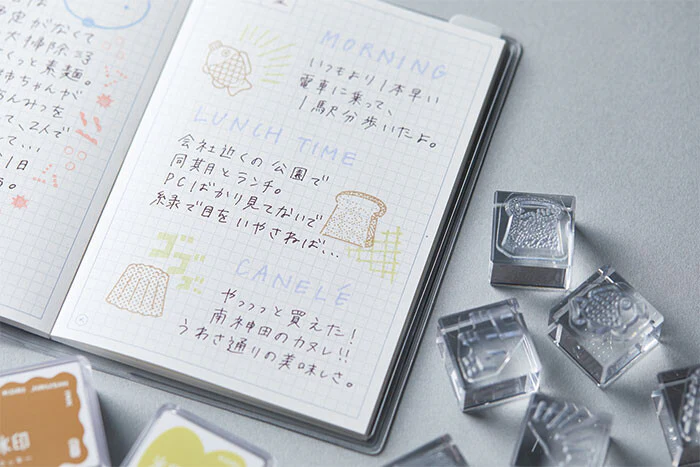 定がなくて
大掃除
くっと素麺。
姉ちゃんが
あんみつを
て、2人で
て…
1日
る。
MORNING
いつもより1本早い
電車に乗って、
1駅分歩いたよ。
LUNCH TIME
会社近くの公園で
同期とランチ。
PCばかり見てないで
緑で目をいやさねば…
CANELÉ
やっっっと買えた!
南神田のカヌレ!!
うわさ通りの美味しさ。
水印